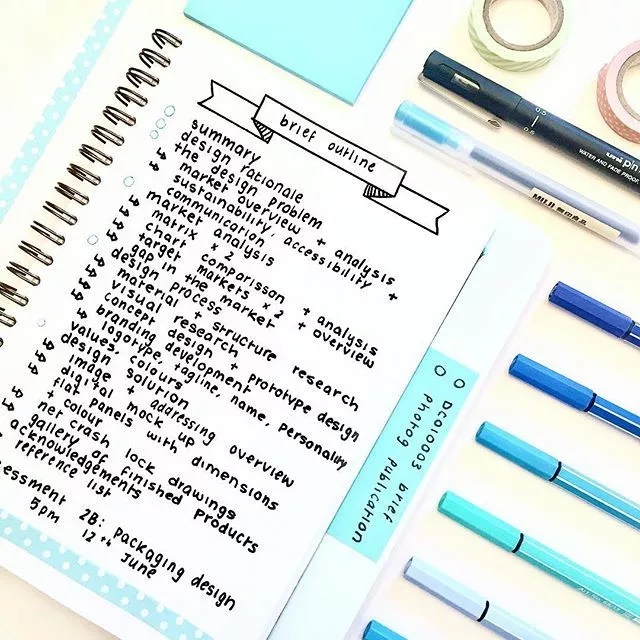 brief outline
summary
design rationale
↳ the design problem
↳ market overview + analysis
↳ sustainability, accessibility +
communication
market analysis
↳ matrix x 2
↳ chart comparisson + analysis
↳ target markets x2 + overview
↳ gap in the market
design process
↳ material + structure research
↳ visual research
↳ concept design + prototype design
↳ branding development
↳ logotype, tagline, name, personality
values, colours
design solution
↳ image + addressing overview
↳ digital mock up
↳ flat panels with dimensions
+ colour
↳ net crash lock drawings
↳ gallery of finished products
acknowledgements
reference list
essment 2B: packaging design
5pm 12th June
DCO10003 brief
Photog publication
uni pin
WATER AND FADE PROOF
MUJI 無印良品